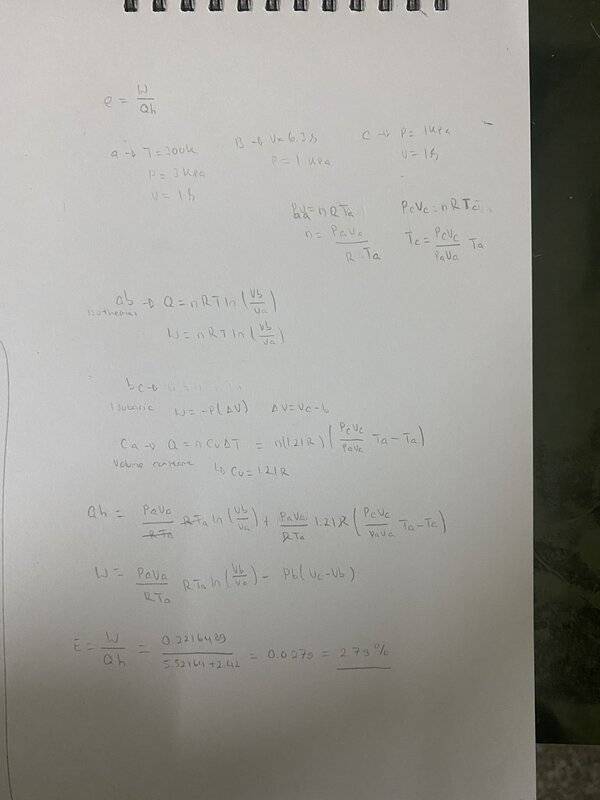 e = W/Qh
a → T=300K B → V=6.3 l C → P= 1 kPa
P= 3 kPa P= 1 kPa V= 1 l
V= 1 l
PaVa=nRTa PcVc=nRTc
n= PaVa/R Ta Tc= PcVc/PaVa Ta
ab → Q=nRT ln(Vb/Va)
isothermal
W=nRT ln(Vb/Va)
bc→
Isobaric W=-P(ΔV) ΔV=Vc-b
Ca → Q=nCvΔT = n(1.21R)(PcVc/PaVa Ta-Ta)
Volume ↳ Cv=1.21R
Qh = PaVa/RTa RTa ln(Vb/Va) + PaVa/RTa 1.21R(PcVc/PaVa Ta-Ta)
W= PaVa/RTa RTa ln(Vb/Va) - Pb(Vc-Vb)
E= W/Qh = 0.2216489/5.52164+2.42 = 0.0279 = 2.79%